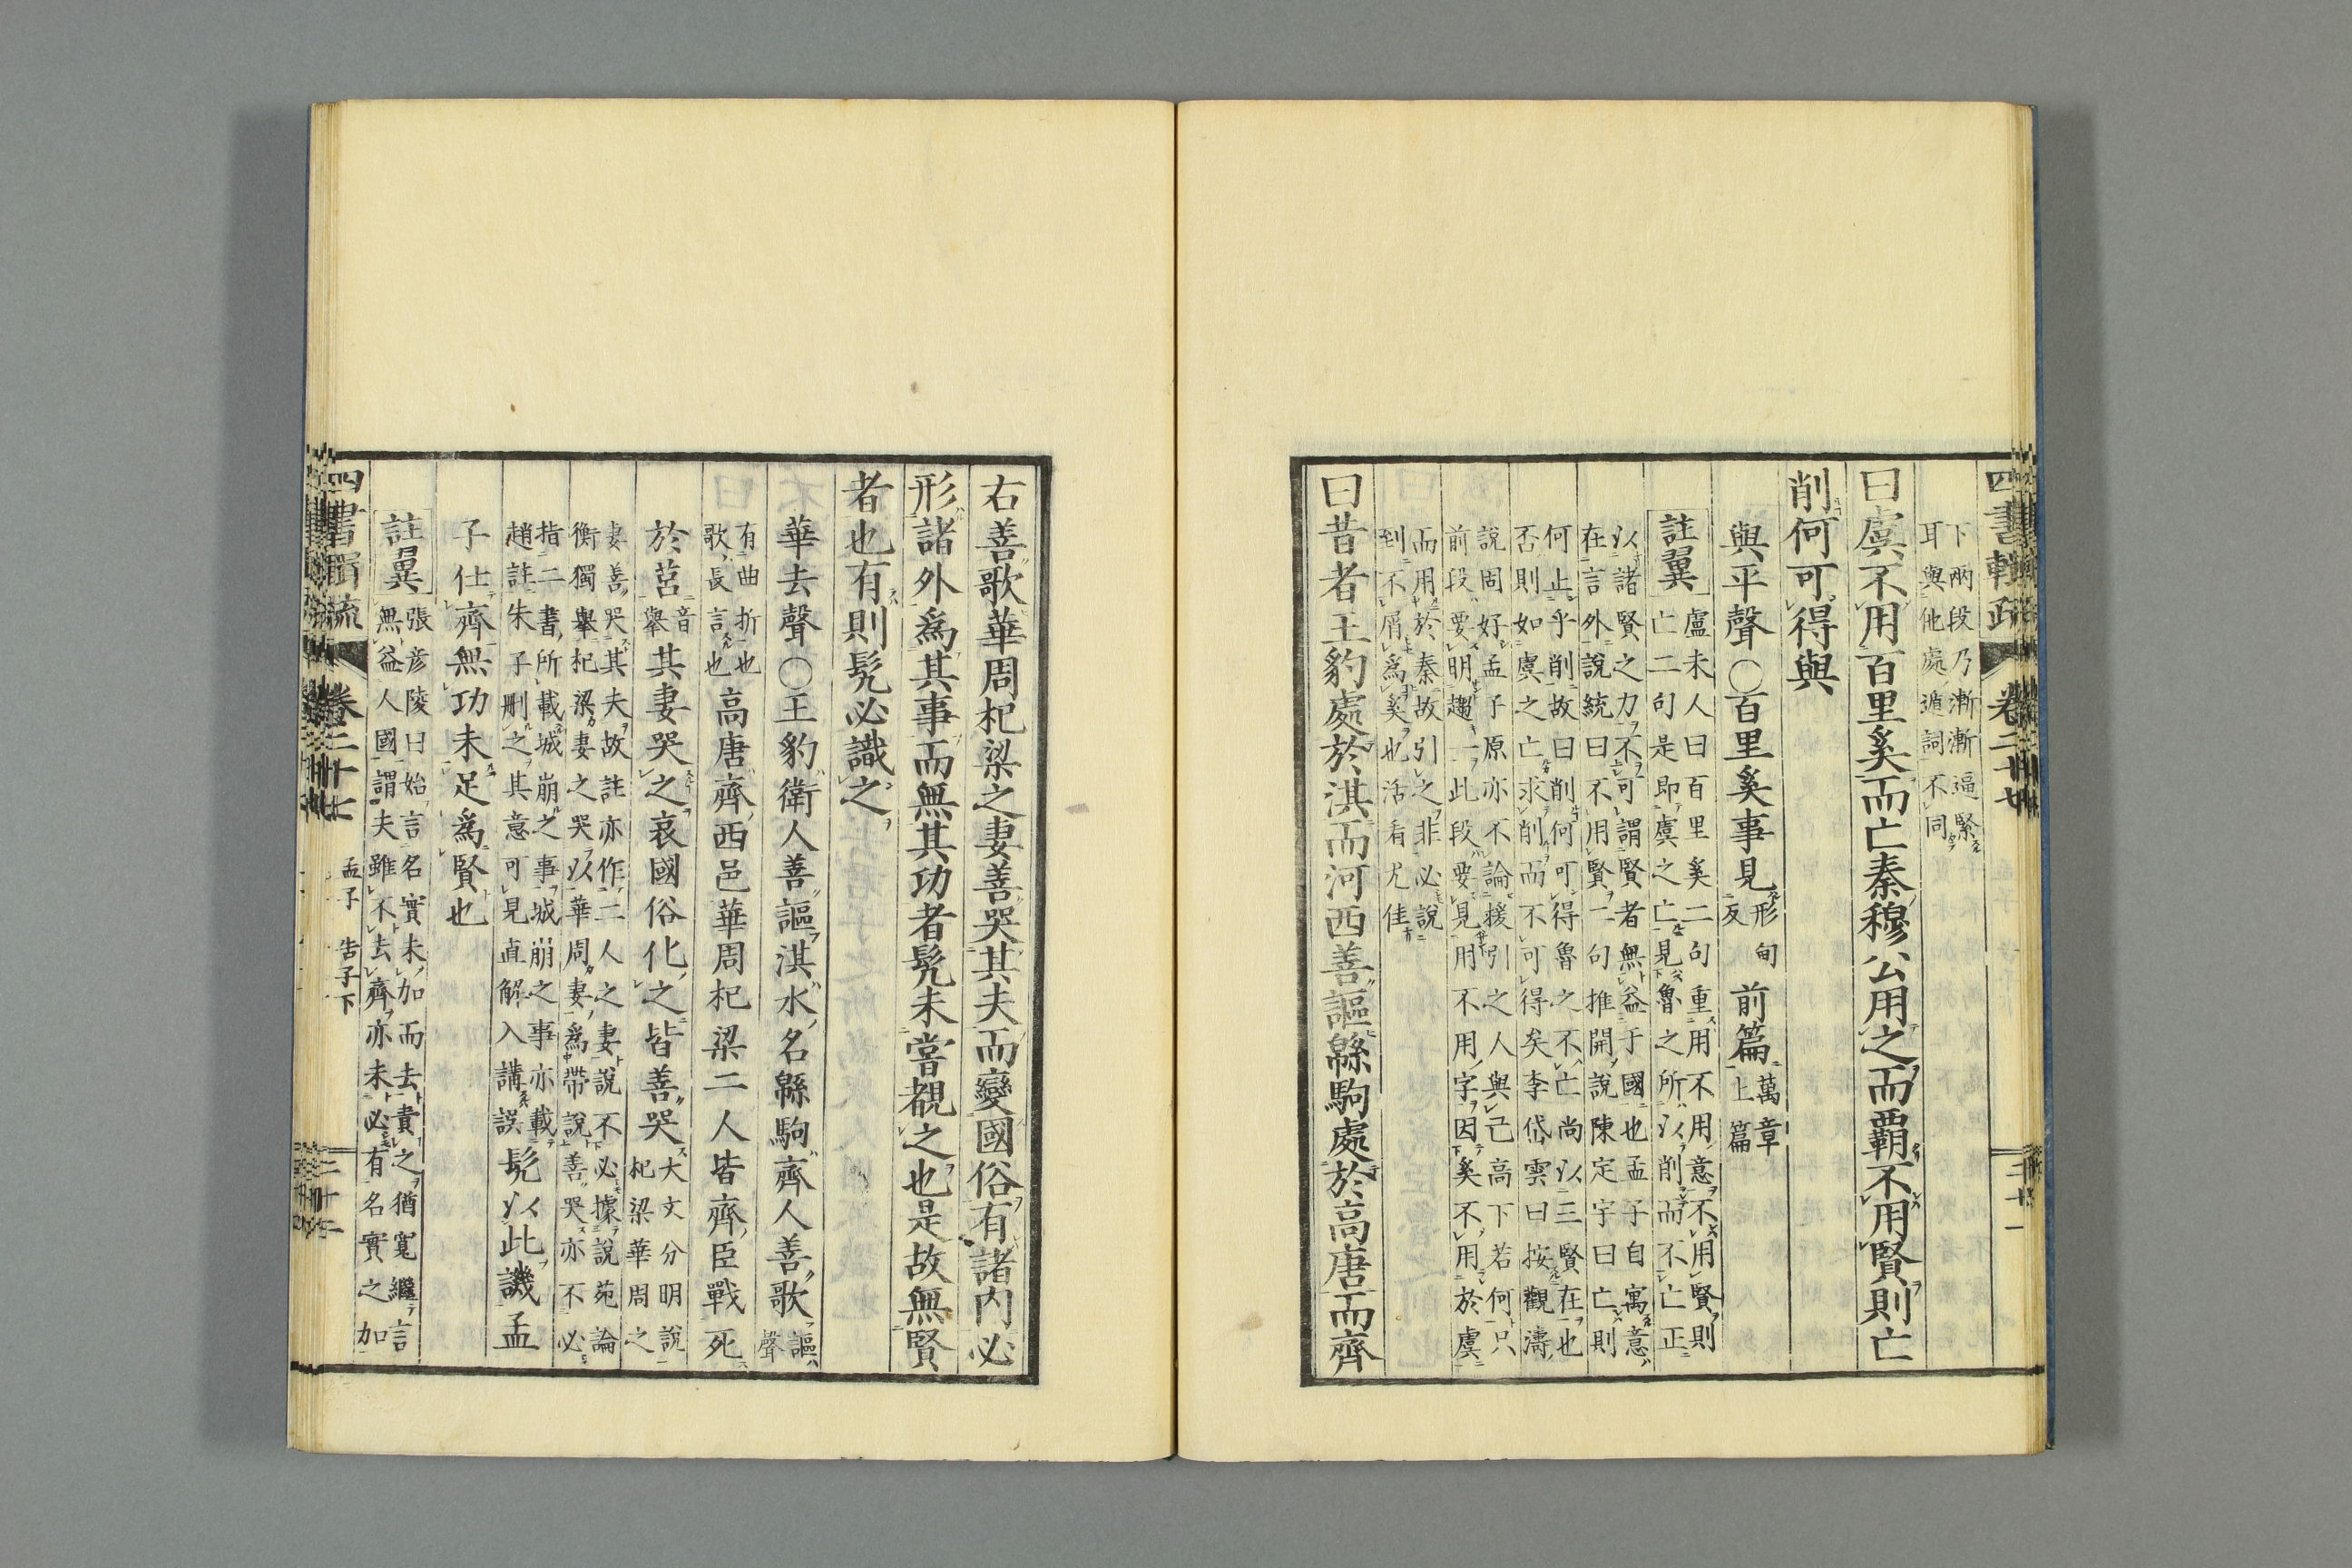 四書輯疏 卷二十七 二十一
下兩段乃漸漸逼緊
耳與他處遁詞不同
曰虞不用百里奚而亡秦穆公用之而覇不用賢則亡
削何可得與
與平聲○百里奚事見形甸反前篇萬章上篇
註翼
盧未人曰百里奚二句重用不用意不用賢則
亡二句是即虞之亡見魯之所以削而不亡正
以諸賢之力不可謂賢者無益于國也孟子自寓意
在言外說統曰不用賢一句推開說陳定宇曰亡則
何止乎削故曰削何可得魯之不亡尚以三賢在也
否則如虞之亡求削而不可得矣李岱雲曰按觀濤
說固好孟子原亦不論援引之人與己高下若何只
前段要明趨一此段要見用不用字因奚不用於虞
而用於秦故引之非必說
到不屑爲奚也活看尤佳
曰昔者王豹處於淇而河西善謳緜駒處於高唐而齊
右善歌華周杞梁之妻善哭其夫而變國俗有諸内必
形諸外爲其事而無其功者髡未甞覩之也是故無賢
者也有則髡必識之
華去聲○王豹衛人善謳淇水名緜駒齊人善歌謳聲
有曲折也
歌長言也
高唐齊西邑華周杞梁二人皆齊臣戰死
於莒音舉其妻哭之哀國俗化之皆善哭
大文分明說
杞梁華周之
妻善哭其夫故註亦作二人之妻說不必據說苑論
衡獨舉杞梁妻之哭以華周妻爲帶說善哭亦不必
指二書所載城崩之事城崩之事亦載
趙註朱子刪之其意可見直解入講誤
髡以此譏孟
子仕齊無功未足爲賢也
註翼
張彦陵曰始言名實未加而去責之猶寬繼言
無益人國謂夫雖不去齊亦未必有名實之加
四書輯疏 卷二十七 孟子 告子下 二十二